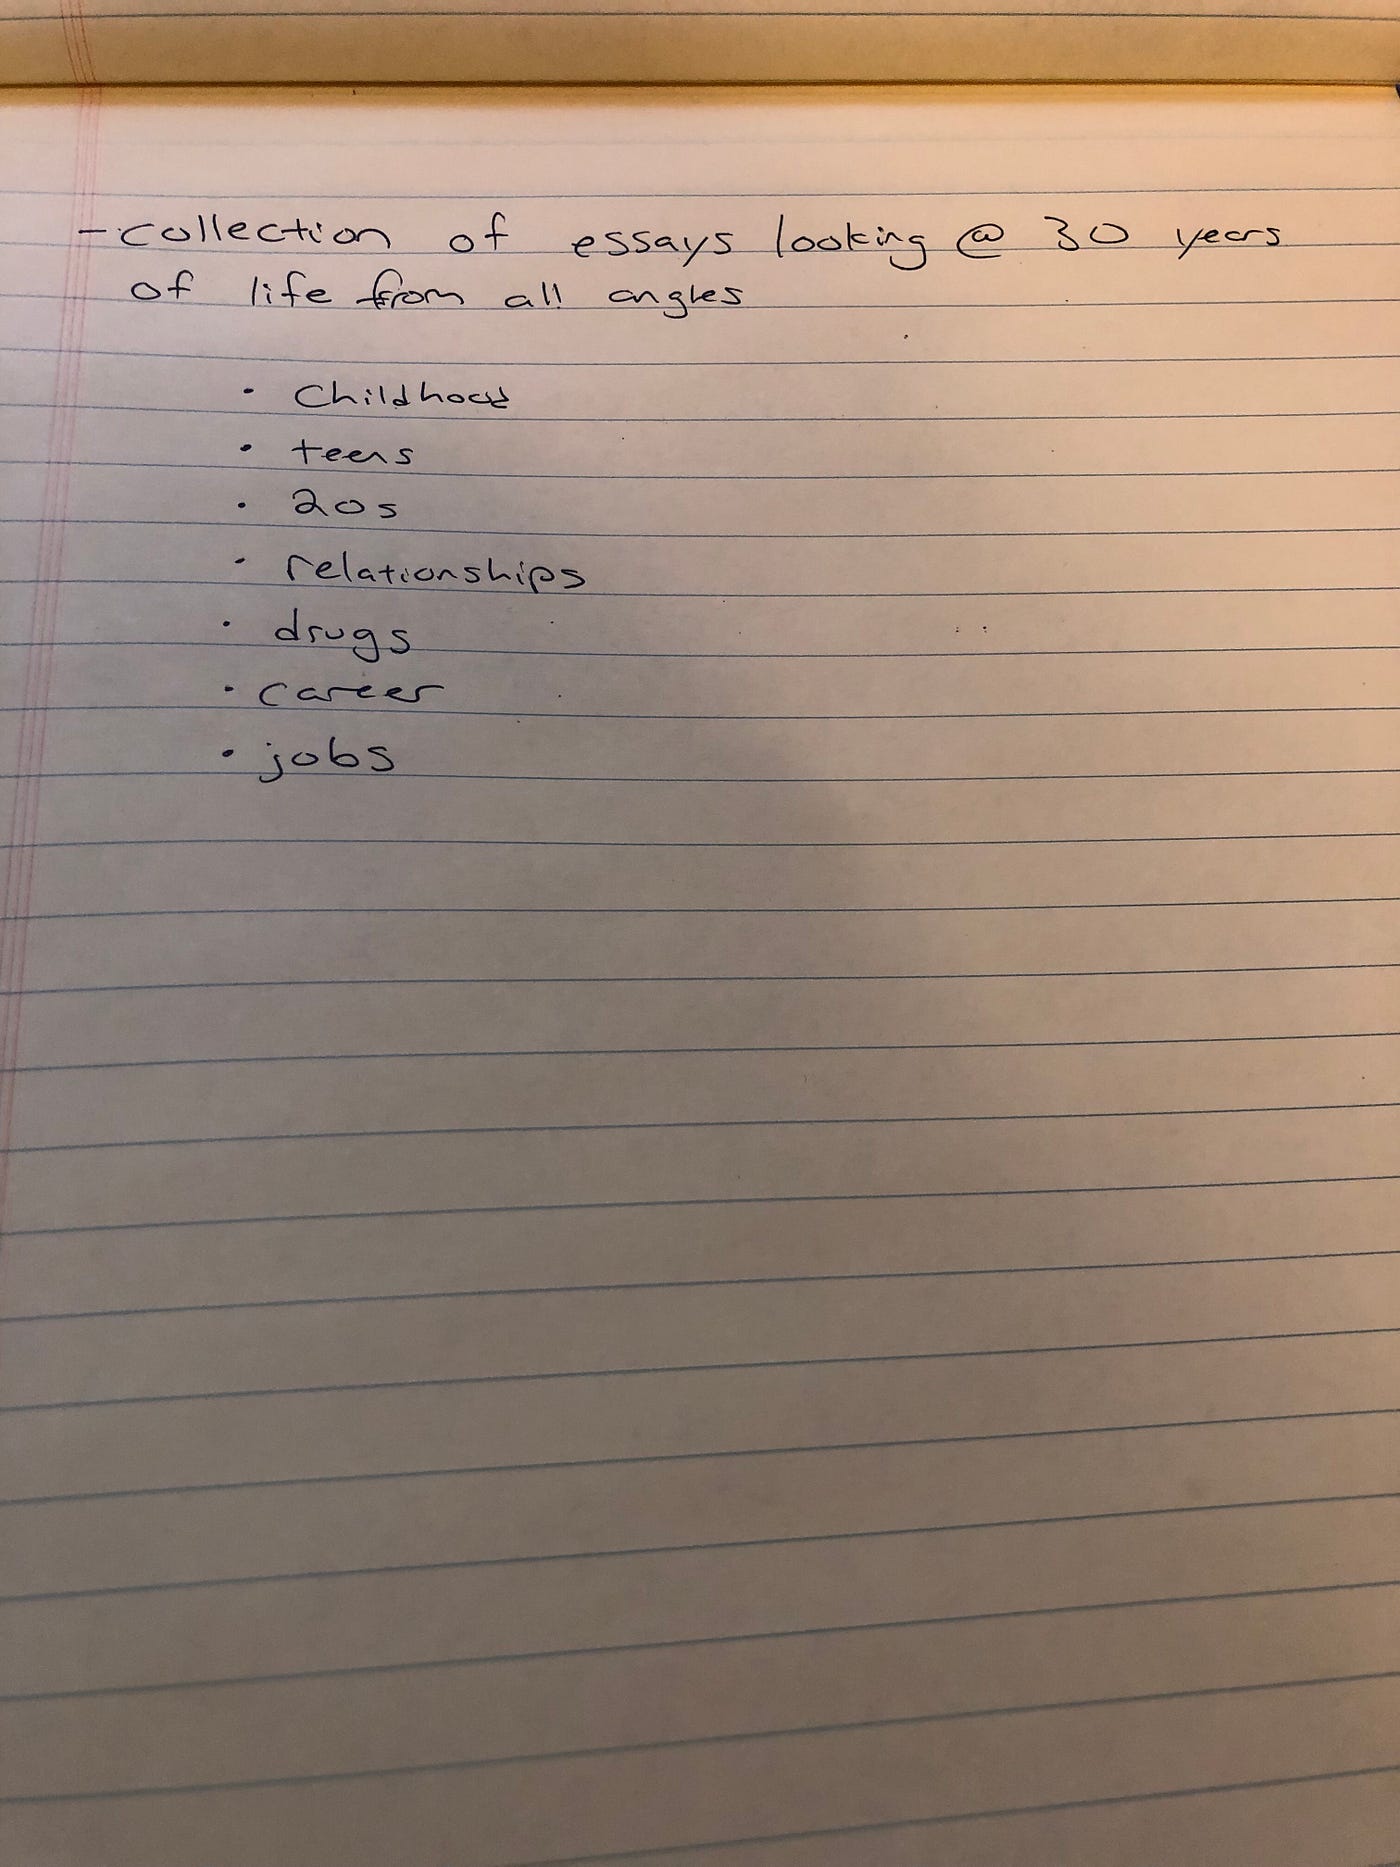 - collection of essays looking @ 30 years
of life from all angles
• Childhood
• teens
• 20s
• relationships
• drugs
• career
• jobs